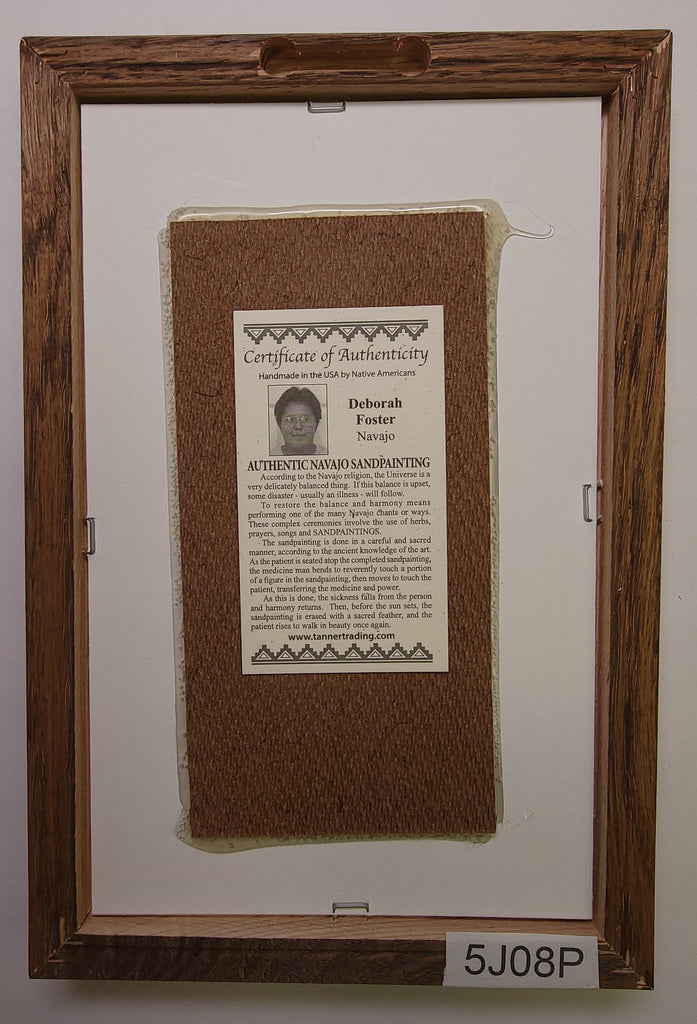 Certificate of Authenticity
Handmade in the USA by Native Americans
Deborah
Foster
Navajo
AUTHENTIC NAVAJO SANDPAINTING
According to the Navajo religion, the Universe is a
very delicately balanced thing. If this balance is upset,
some disaster - usually an illness - will follow.
To restore the balance and harmony means
performing one of the many Navajo chants or ways.
These complex ceremonies involve the use of herbs,
prayers, songs and SANDPAINTINGS.
The sandpainting is done in a careful and sacred
manner, according to the ancient knowledge of the art.
As the patient is seated atop the completed sandpainting,
the medicine man bends to reverently touch a portion
of a figure in the sandpainting, then moves to touch the
patient, transferring the medicine and power.
As this is done, the sickness falls from the person
and harmony returns. Then, before the sun sets, the
sandpainting is erased with a sacred feather, and the
patient rises to walk in beauty once again.
www.tannertrading.com
5J08P